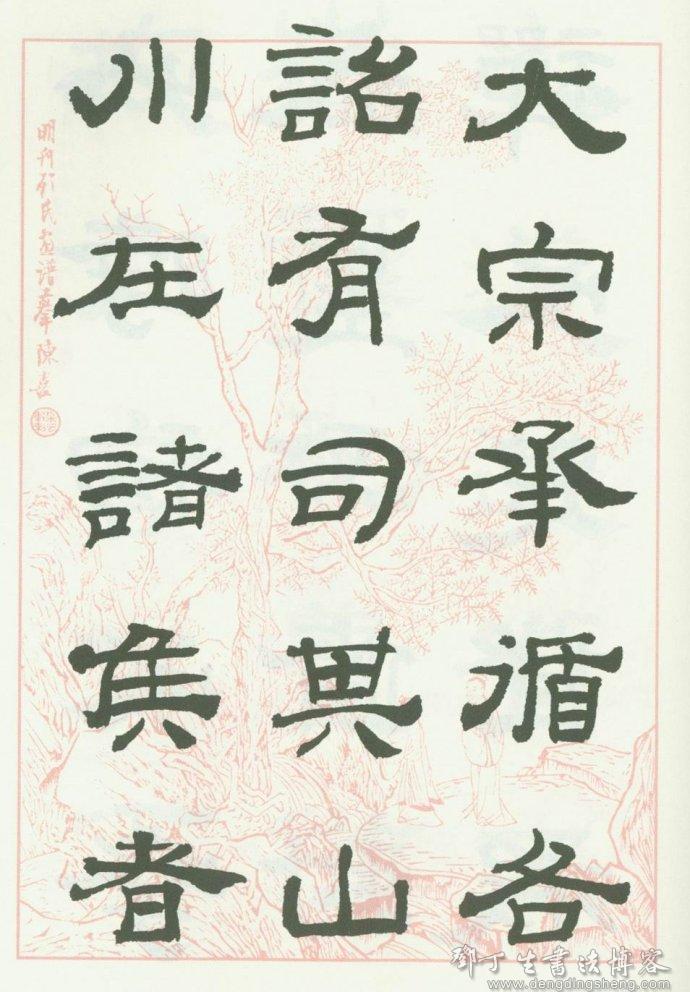 大宗承循各
詔有司其山
川在諸侯者
明刊顾氏畫譜摹陳
鄧丁生書法博客
www.dengdingsheng.com